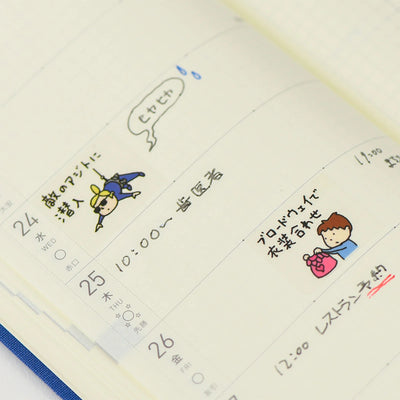 ヒヤヒヤ
敵のアジトに
潜入
24
水
WED
赤口
10:00〜 歯医者
25
木
THU
先勝
ブロードウェイで
衣装合わせ
19:00
26
金
FRI
12:00 レストラン予約